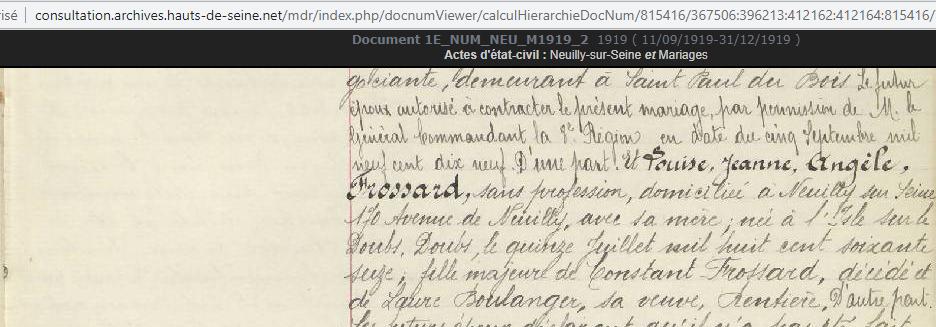 risé consultation.archives.hauts-de-seine.net/mdr/index.php/docnumViewer/calculHierarchieDocNum/815416/367506:396213:412162:412164:815416/
Document 1E_NUM_NEU_M1919_2 1919 ( 11/09/1919-31/12/1919 )
Actes d'état-civil : Neuilly-sur-Seine et Mariages
gociante, demeurant à Saint Paul du Bois Le futur
époux autorisé à contracter le présent mariage, par permission de M. le
Général Commandant la Région en date du cinq Septembre mil
neuf cent dix neuf. D'une part. Et Louise, Jeanne, Angèle,
Frossard, sans profession, domiciliée à Neuilly sur Seine
170 Avenue de Neuilly, avec sa mère ; née à l'Isle sur le
Doubs, Doubs, le quinze Juillet mil huit cent soixante
seize, fille majeure de Constant Frossard, décédé et
de Laure Boulanger, sa veuve, Rentière, D'autre part.